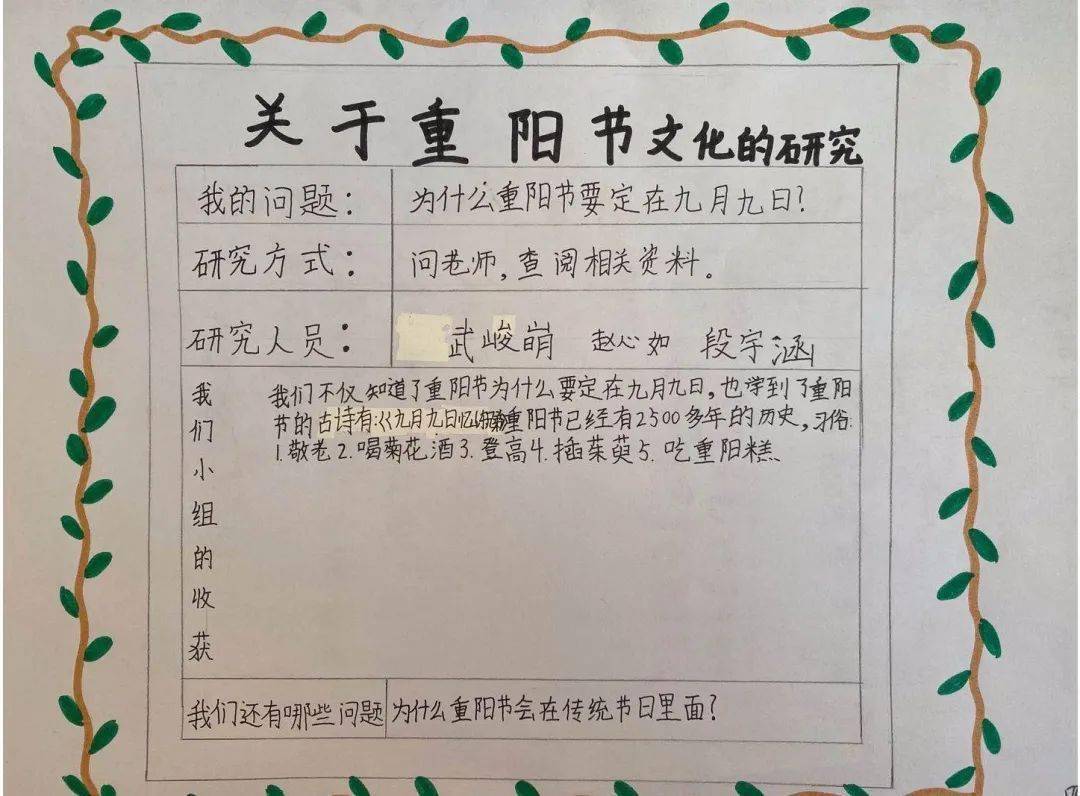 关于重阳节文化的研究
我的问题： 为什么重阳节要定在九月九日？
研究方式： 问老师，查阅相关资料。
研究人员： 武峻 赵心如 段宇涵
我们小组的收获
我们不仅知道了重阳节为什么要定在九月九日，也学到了重阳
节的古诗有：《九月九日忆 重阳节已经有2500多年的历史，习俗：
1.敬老2.喝菊花酒3.登高4.插茱萸5.吃重阳糕、
我们还有哪些问题 为什么重阳节会在传统节日里面？